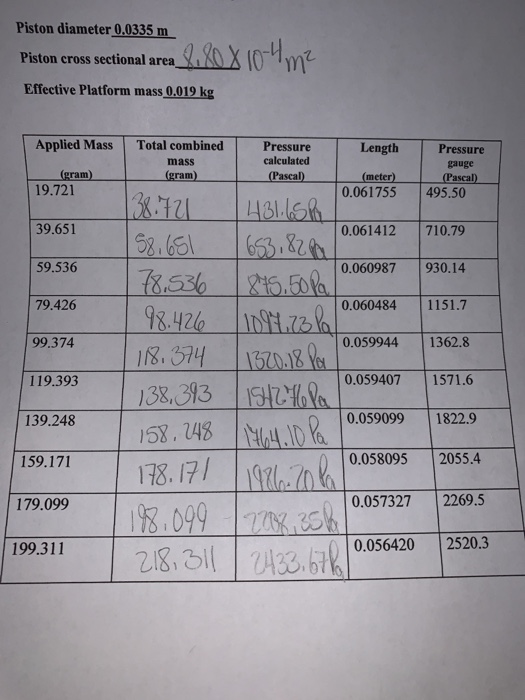 Piston diameter 0.0335 m
Piston cross sectional area 8.80 X 10-4 m2
Effective Platform mass 0.019 kg
Applied Mass (gram) Total combined mass (gram) Pressure calculated (Pascal) Length (meter) Pressure gauge (Pascal)
19.721 38.721 431.65 Pa 0.061755 495.50
39.651 58.651 653.82 Pa 0.061412 710.79
59.536 78.536 875.50 Pa 0.060987 930.14
79.426 98.426 1097.23 Pa 0.060484 1151.7
99.374 118.374 1320.18 Pa 0.059944 1362.8
119.393 138.393 1542.76 Pa 0.059407 1571.6
139.248 158.248 1764.10 Pa 0.059099 1822.9
159.171 178.171 1986.20 Pa 0.058095 2055.4
179.099 198.099 2208.35 Pa 0.057327 2269.5
199.311 218.311 2433.67 Pa 0.056420 2520.3